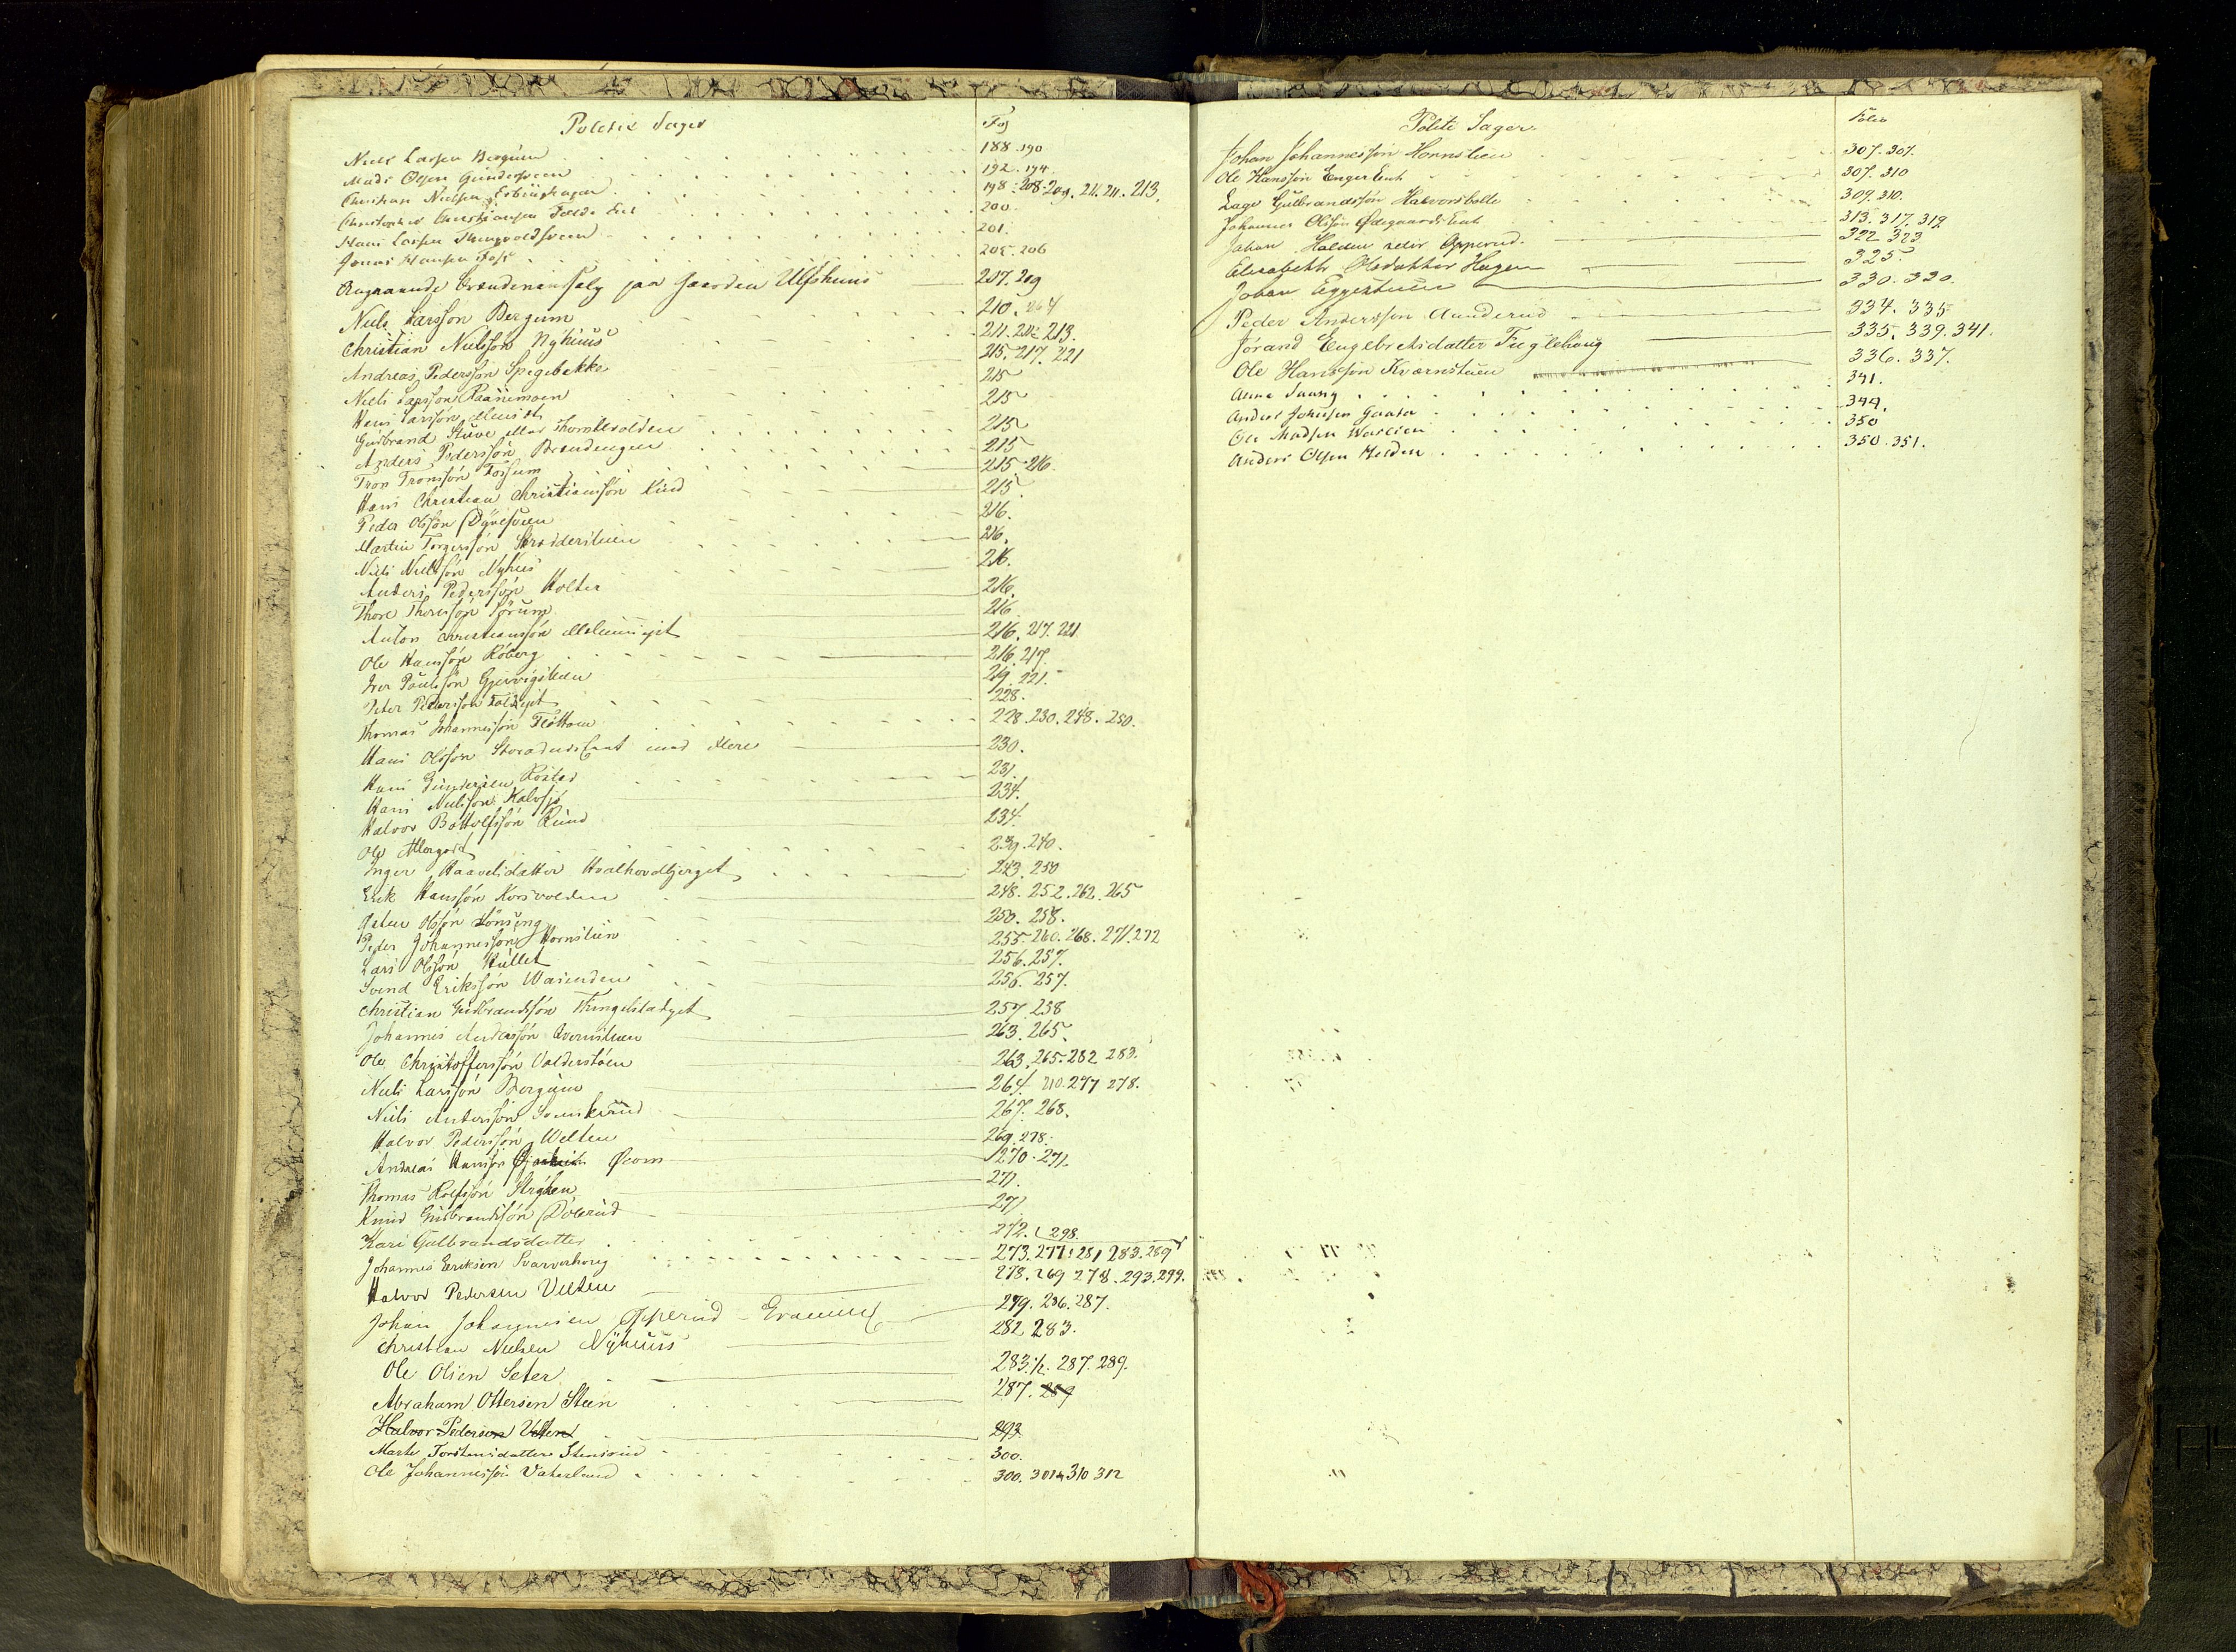 Politie Sager Fol
Niels Larsen Bergum 188. 190
Mads Olsen Gundersveen 192. 194
Christian Nielsen 198. 208. 209. 211. 211. 213.
Christopher Christiansen 200.
Hans Larsen Thingvoldsveen 201.
Jonas Hansen Foss 205. 206
Angaaende Brændeviinssalg paa Gaarden Ulfshuus 207. 209
Niels Larssøn Bergum 210. 264
Christian Nielssøn Nyhuus 211. 212. 213.
Andreas Pederssøn Spegebakke 215. 217. 221
Niels Larssøn Raanimoen 215
Hans Larssøn 215
Gudbrand Stuve eller Thomlevolden 215
Anders Pederssøn Brændengen 215
Tron Tronssøn Fossum 215. 216.
Hans Christian Christianssøn Lind 215.
Peder Olssøn Dyvesveen 216.
Martin Torgerssøn Skrædderstuen 216.
Niels Nielssøn Nyhuus 216.
Anders Pederssøn Holter 216.
Thore Thoressøn Sørum 216
Anton Christianssøn 216. 217. 221.
Ole Hanssøn Røberg 216. 217.
Iver Paulssøn 219. 221.
Peter Pederssøn 228.
Thomas Johannessøn Fløttom 228. 230. 248. 250.
Hans Olssøn med flere 230.
Hans Gundersen 231.
Hans Nielssøn Kalvsjø 234.
Halvor Bottolfssøn Ruud 234.
Ole 239. 240.
Inger Haavelsdatter Hvalhovdbjerget 243. 250
Erik Hanssøn Korsvolden 248. 252. 262. 265
Østen Olssøn Lønseng 250. 258.
Peder Johannessøn Hornslien 255. 260. 268. 271. 272
Lars Olssøn Hullet 256. 257.
Svend Erikssøn Wasenden 256. 257.
Christian Gudbrandssøn Thingelstadget 257. 258
Johannes Anderssøn Kvernstuen 263. 265.
Ole Christofferssøn Valderstøen 263. 265. 282 283.
Niels Larssøn Bergum 264. 210. 277 278.
Niels Anderssøn Svenskerud 267. 268.
Halvor Pederssøn Welten 269. 278.
Andreas Hanssøn Øiom 270. 271.
Thomas Rolfssøn Strøken 271.
Knud Gudbrandssøn Døbrud 271
Kari Gulbrandsdatter 272. 298.
Johannes Eriksen Svarverhoug 273. 277. 281 283. 289
Halvor Pedersen Velten 278. 269 278. 293. 299.
Johan Johannesen Opperud - 279. 286. 287.
Christian Nielsen Nyhuus 282. 283.
Ole Olsen Seter 283 1/2. 287. 289.
Abraham Ottersen Steen 287. 289
Halvor Pedersen Velten 293.
Marte Torstensdatter Stensrud 300.
Ole Johannessøn Vaterland 300. 301. 310 312
Politi Sager. Folio
Johan Johannessøn Hornslien 307. 307.
Ole Hanssøn Engereiet 307. 310
Lage Gulbrandssøn Halvorsbølle 309. 310.
Johannes Olssøn Ødegaardseiet 313. 317. 319
Johan Halden eller Opperud. 322 323
Elisabeth Olsdatter Hagen 325.
Johan Eggestuen 330. 330.
Peder Anderssøn Aanderud 334. 335
Jørand Engebretsdatter Fuglehaug 335. 339. 341.
Ole Hanssøn Kværnstuen 336. 337.
Anne Saang 341.
Anders Johnsen Gaasa 344.
Ole Madsen Waslien 350
Anders Olsen Melden 350. 351.